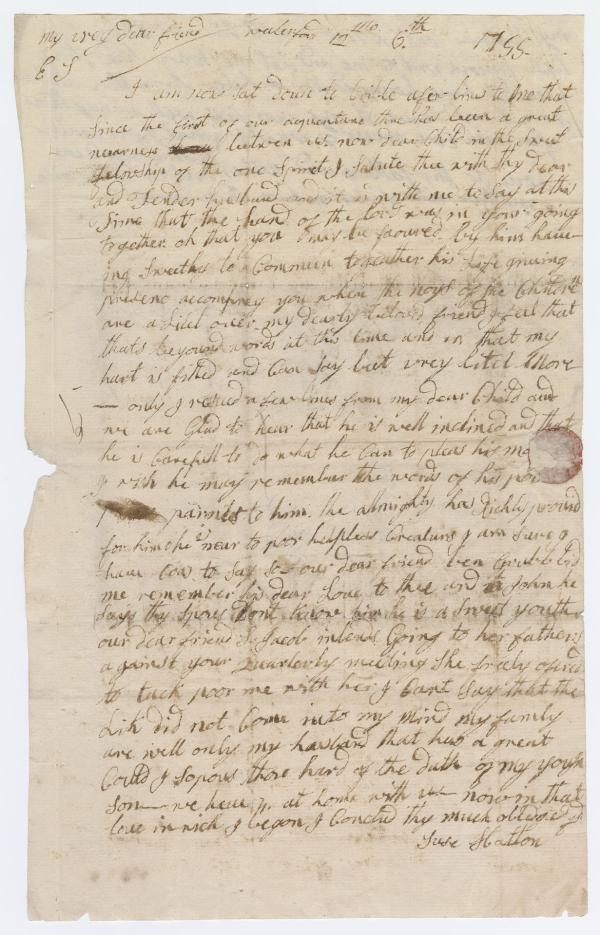 my vrey dear friend Waterford 12 mo 6th 1755
E S
I am now sat doune to Scrible a fer lins to thee that
Since the first of our aquentance thee has been a great
nearness between us. now dear Child in the Sweet
felowship of the one Spirit I Salute thee with thy dear
and Tender husband and it is with me to Say at this
Time that the hand of the lord was in your going
together oh that you may be favoured by him have
ing Sweethe to Commun together his Life giveing
presenc accompney you when the noys of the Children
are a Litel over my dearly beloved friend I feel that
thats beyound words at this time and in that my
hart is filled and Can Say but vrey Litel More
— only I receud a few lines from my dear Child and
we are Glad to hear that he is well inclined and that
he is Carefull to do what he Can to pleas his
I wish he may remember the words of his poor
parints to him. the almighty has Richly provid
for him he is near to poor helpless Creaturs I am Sure I
have Cos to Say So our dear friend ben Grubb bid
me remember his dear Love to thee and John he
Says thy Spous Dont know him he is a Sweet youth
our dear friend S Jacob intends Going to her fathers
against your Quarterly meeting She freely ofered
to tack poor me with her I Cant Say that the
Lik did not Come into my mind my famly
are well only my husband that has a great
Could I Sopous thou hard of the dath of my yough
Son — we have at home with us now in that
love in wich I began I Conclud thy much oblidged
Suse Hatton